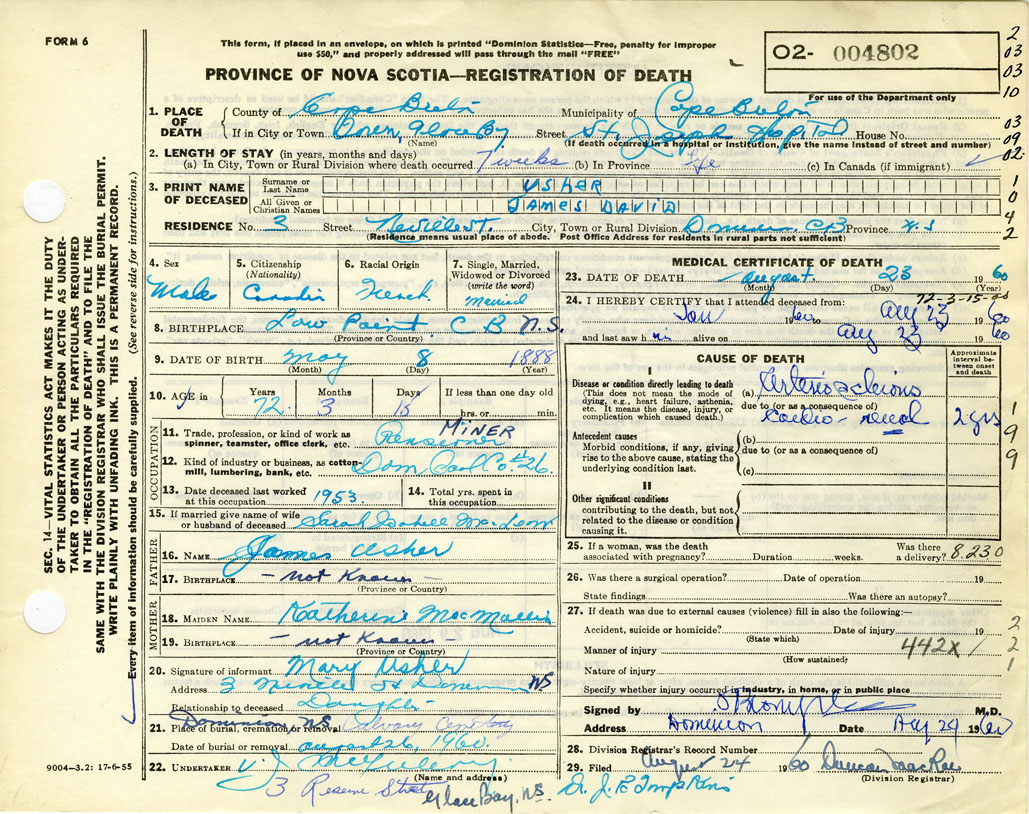 FORM 6
This form, if placed in an envelope, on which is printed "Dominion Statistics—Free, penalty for improper
use $50," and properly addressed will pass through the mail "FREE"
O2- 004802
PROVINCE OF NOVA SCOTIA—REGISTRATION OF DEATH
For use of the Department only
2
03
03
10
03
09
02
1
0
4
2
1
9
9
2
2
1
SEC. 14—VITAL STATISTICS ACT MAKES IT THE DUTY
OF THE UNDERTAKER OR PERSON ACTING AS UNDER-
TAKER TO OBTAIN ALL THE PARTICULARS REQUIRED
IN THE "REGISTRATION OF DEATH" AND TO FILE THE
SAME WITH THE DIVISION REGISTRAR WHO SHALL ISSUE THE BURIAL PERMIT.
WRITE PLAINLY WITH UNFADING INK. THIS IS A PERMANENT RECORD.
Every item of information should be carefully supplied. (See reverse side for instructions.)
1. PLACE OF DEATH
County of Cape Breton Municipality of Cape Breton
If in City or Town Glace Bay Street St. Joseph Hospital House No.
(Name) (If death occurred in a hospital or institution, give the name instead of street and number)
2. LENGTH OF STAY (in years, months and days)
(a) In City, Town or Rural Division where death occurred 7 weeks (b) In Province Life (c) In Canada (if immigrant)
3. PRINT NAME OF DECEASED
Surname or Last Name USHER
All Given or Christian Names JAMES DAVID
RESIDENCE No. 3 Street Neville St. City, Town or Rural Division Dominion CB Province N.S
(Residence means usual place of abode. Post Office Address for residents in rural parts not sufficient)
4. Sex 5. Citizenship (Nationality) 6. Racial Origin 7. Single, Married, Widowed or Divorced (write the word)
Male Canadian French Married
8. BIRTHPLACE Low Point C B N.S.
(Province or Country)
9. DATE OF BIRTH May 8 1888
(Month) (Day) (Year)
10. AGE in Years 72 Months 3 Days 15 If less than one day old hrs. or min.
OCCUPATION
11. Trade, profession, or kind of work as spinner, teamster, office clerk, etc. Pensioner MINER
12. Kind of industry or business, as cotton-mill, lumbering, bank, etc. Dom Coal Co #26.
13. Date deceased last worked at this occupation 1953 14. Total yrs. spent in this occupation
15. If married give name of wife or husband of deceased Sarah Isabell MacLean
FATHER
16. NAME James Usher
17. BIRTHPLACE — not Known —
(Province or Country)
MOTHER
18. MAIDEN NAME Katherine
19. BIRTHPLACE — not Known
(Province or Country)
20. Signature of informant Mary Usher
Address 3 Neville St Dominion NS
Relationship to deceased Daughter
Dominion, NS
21. Place of burial, cremation, or removal Calvary Cemetery
Date of burial or removal August 26, 1960.
22. UNDERTAKER V. J. McGillivary
(Name and address)
3 Reserve Street Glace Bay, NS.
9004—3.2: 17-6-55
MEDICAL CERTIFICATE OF DEATH
23. DATE OF DEATH August 23 1960
(Month) (Day) (Year)
72-3-15-00
24. I HEREBY CERTIFY that I attended deceased from:
Jan 1960 to Aug 23 1960
and last saw him alive on Aug 23 1960
CAUSE OF DEATH
Approximate interval between onset and death
I
Disease or condition directly leading to death
(This does not mean the mode of dying, e.g., heart failure, asthenia, etc. It means the disease, injury, or complication which caused death.)
(a)
due to (or as a consequence of)
Cardio-renal 2 yrs
Antecedent causes
Morbid conditions, if any, giving rise to the above cause, stating the underlying condition last.
(b)
due to (or as a consequence of)
(c)
II
Other significant conditions
contributing to the death, but not related to the disease or condition causing it.
25. If a woman, was the death associated with pregnancy? Duration weeks. Was there a delivery? 8.230
26. Was there a surgical operation? Date of operation 19
State findings Was there an autopsy?
27. If death was due to external causes (violence) fill in also the following:—
Accident, suicide or homicide? Date of injury 19
(State which)
Manner of injury 442X 1
(How sustained)
Nature of injury
Specify whether injury occurred in industry, in home, or in public place
Signed by M.D.
Address Dominion Date Aug 24 1960
28. Division Registrar's Record Number
29. Filed August 24 1960 Duncan MacRae
(Division Registrar)